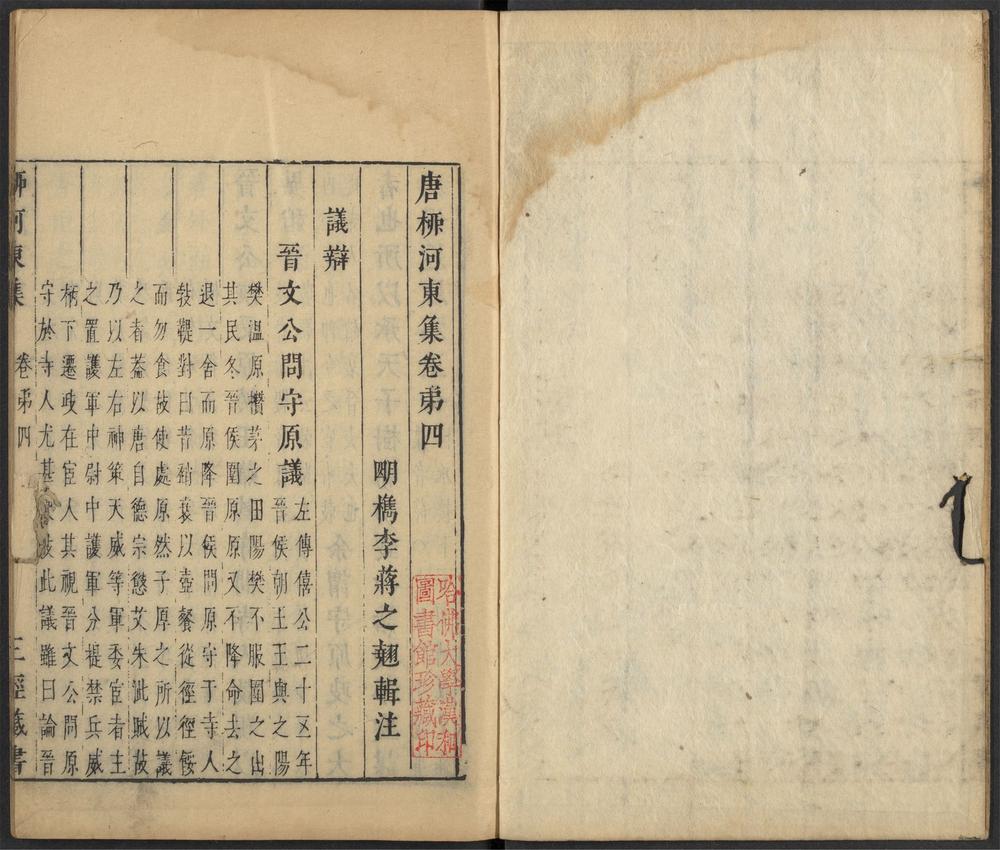 唐桺河東集卷弟四
哈佛大學漢和
圖書館珍藏印
明檇李蔣之翹輯注
議辯
晉文公問守原議
左傳僖公二十五年
晉侯朝王王與之陽
樊溫原欑茅之田陽樊不服圍之出
其民冬晉侯圍原原又不降命去之
退一舍而原降晉侯問原守于寺人
㪍鞮對曰昔趙衰以壺餐從徑徑餒
而勿食故使處原然子厚之所以議
之者葢以唐自德宗懲艾朱泚賊故
乃以左右神策天威等軍委宦者主
之置護軍中尉中護軍分提禁兵威
柄下遷政在宦人其視晉文公問原
守於寺人尤甚故此議雖曰論晉
桺河東集 卷弟四 三徑藏書